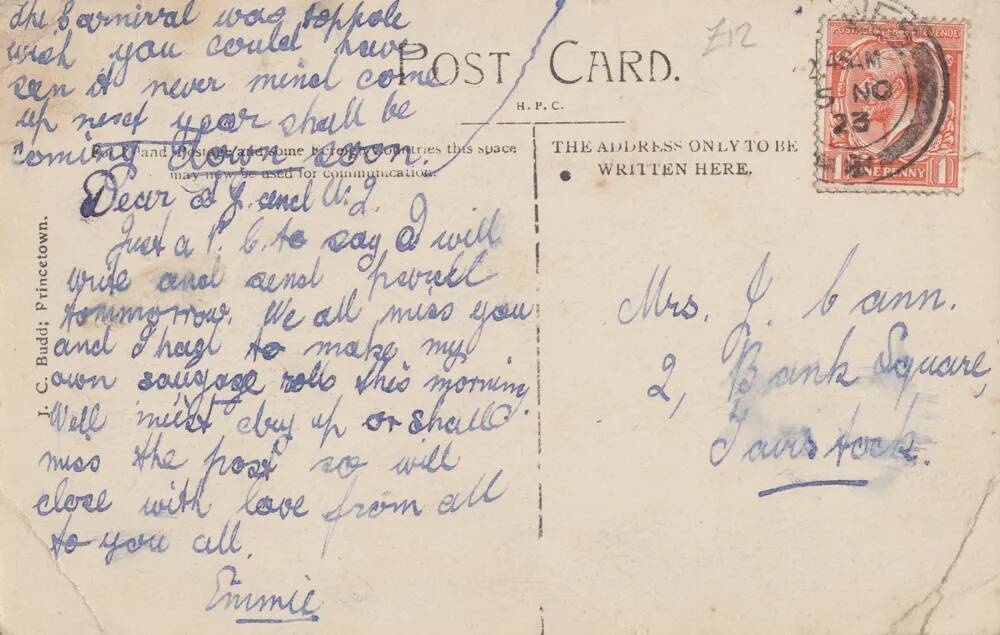 the Carnival was toppole
wish you could have
seen it never mind come
up next year shall be
coming down soon.
POST CARD.
H. P. C.
Z12
and Postage and some Foreign Countries this space
may now be used for communication.
THE ADDRESS ONLY TO BE
WRITTEN HERE.
POSTAGE REVENUE
ONE PENNY
1 1
AM
NO
23
J. C. Budd; Princetown.
Dear a J. and U. J.
Just a P. C. to say I will
write and send parcel
tommorrow. We all miss you
and I had to make my
own sausage rolls this morning
Well must dry up or shall
miss the post so will
close with love from all
to you all.
Emmie
Mrs. J. Cann.
2, Bank Square,
Tavistock.